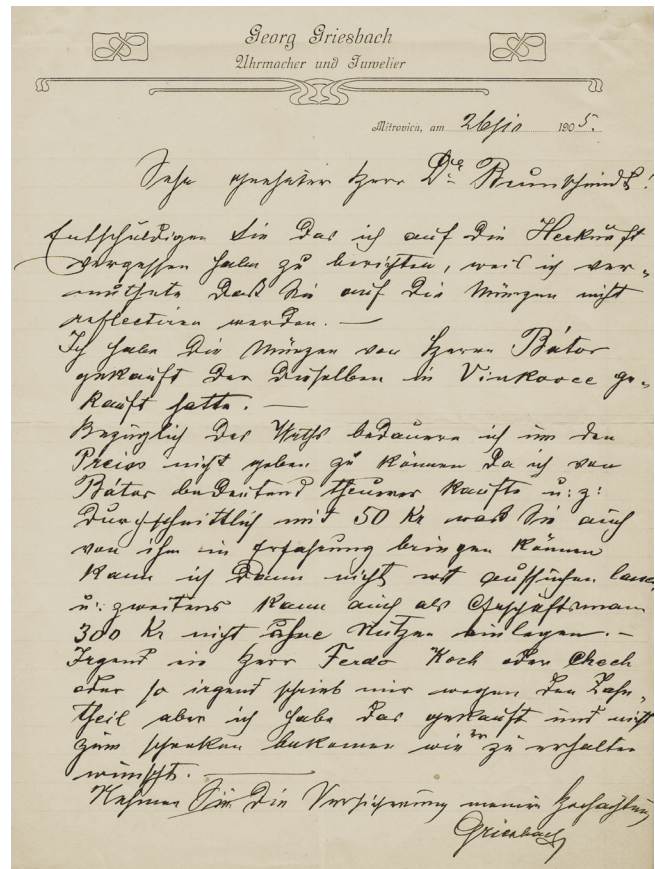 Georg Griesbach
Uhrmacher und Juwelier
Mitrovica, am 26/ 1905.
Sehr geehrter Herr Dr Brunschmidt!
Entschuldigen Sie das ich auf die Herkunft
vergessen habe zu berichten, weil ich ver-
muthete das Sie auf die Münzen nicht
reflectiren werden. —
Ich habe die Münzen von Herrn Bátor
gekauft der dieselben in Vinkovce ge-
kauft hatte. —
Bezüglich des Werths bedauere ich um den
Preiss nicht geben zu können da ich von
Bátor bedeutend theurer kaufte u: z:
durchschnittlich mit 50 Kr was Sie auch
von ihm in Erfahrung bringen können
kann ich dann nicht aussuchen lassen
u: zweitens kann auch als Geschäftsmann
300 Kr nicht ohne Nutzen einlegen. —
Irgend ein Herr Ferdo Koch oder Chech
oder so irgend schrieb mir wegen den Zahn-
theil aber ich habe das gekauft und nicht
zum schenken bekommen wie er zu erhalten
wünscht. —
Nehmen Sie die Versicherung meiner Hochachtung
Griesbach